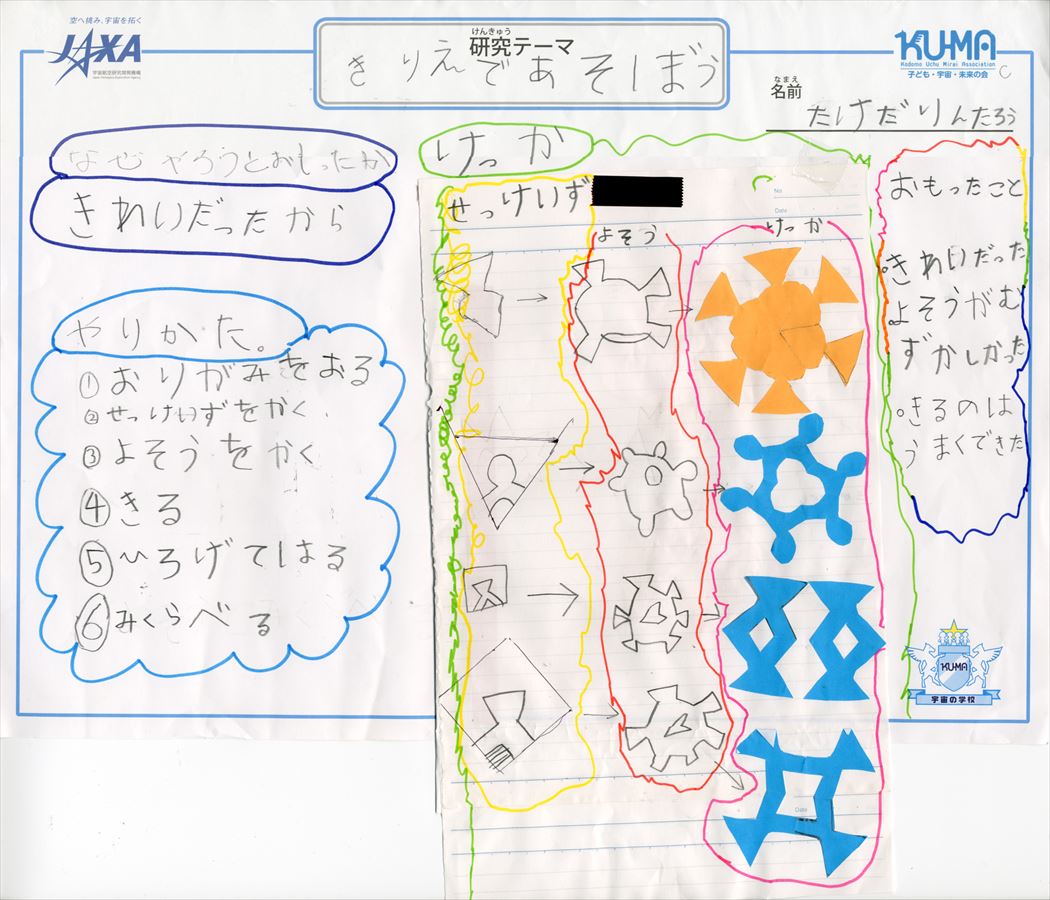 空へ挑み、宇宙を拓く
JAXA
宇宙航空研究開発機構
Japan Aerospace Exploration Agency
けんきゅう
研究テーマ
きりえであそぼう
KU-MA
Kodomo Uchu Mirai Association
子ども・宇宙・未来の会
C
なまえ
名前
たけだりんたろう
なぜやろうとおもったか
きれいだったから
やりかた。
①おりがみをおる
②せっけいずをかく、
③よそうをかく
④きる
⑤ひろげてはる
⑥みくらべる
けっか
No
Date
せっけいず
よそう
けっか
Date
おもったこと
。きれいだった
よそうがむ
ずかしかった
。きるのは
うまくできた
KUMA
宇宙の学校